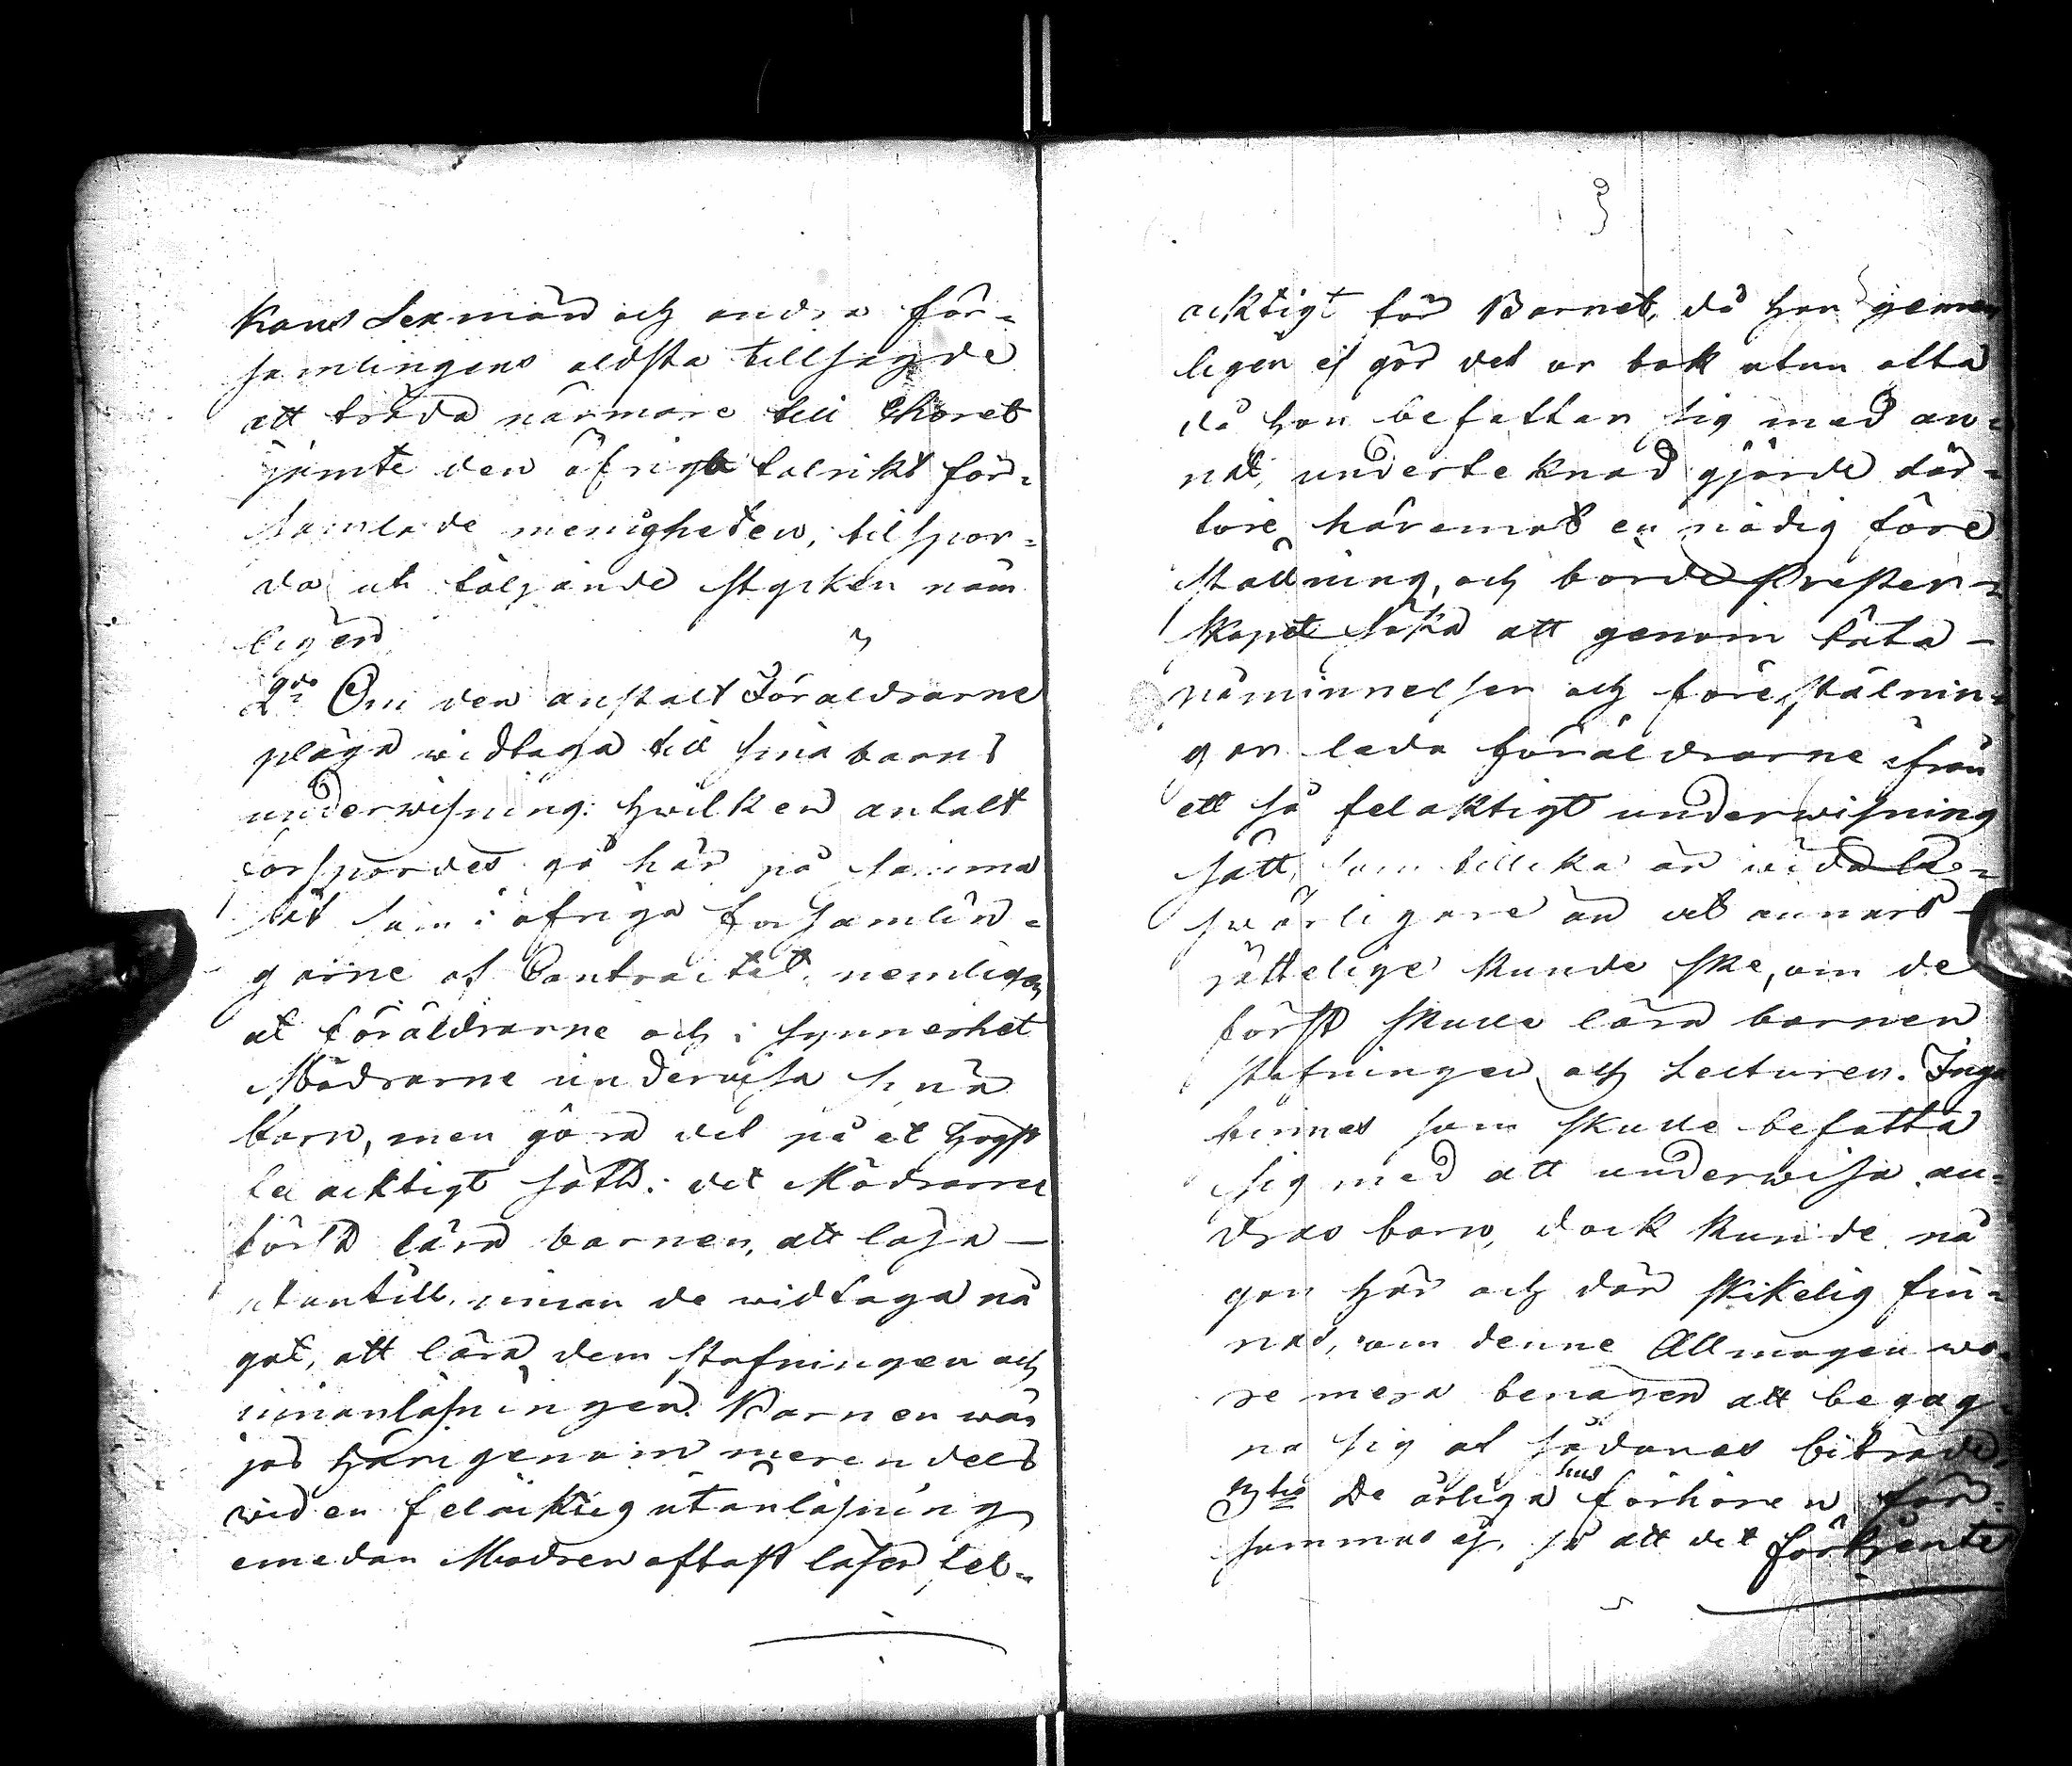 kans Sexmän och andra för-
samlingens äldsta tillsagde
att träda närmare till Choret
jämte den öfriga talrikt för-
samlade menigheten, tilspor-
da uti följande stycken näm
ligen
2do Om den anstalt Föräldrarne
pläga widtaga till sina barns
underwisning: hwilken antalt
forspordes gå här på samma
sät som i öfriga forsamlin-
garne af Contractet, nemligen
at föräldrarne och i synnerhet
Mödrarne underwisa sina
barn, men göra det på et högst
felacktigt sätt: det Mödrarne
först lära barnen, att läsa
utantill, innan de widtaga nå
got, att lära dem stafningen och
innanläsningen. Barnen wän
jas härigenom merendels
wid en felacktig utanläsning
emedan Modren oftast läser fel-
3
acktigt för Barnet, då hon gemen
ligen ej gör det ur bok utan ofta
då hon befattar sig med an-
nat, underteknad gjorde där-
före häremot en nödig före
ställning, och borde Prester-
skapet söka att genom täta
påminnelser och föreställnin-
gar leda föräldrarne ifrån
ett så felaktigt underwisning
sätt, som tillika är wida be-
swärligare än det annars
rättelige kunde ske, om de
först skulle lära barnen
stafningen och Lecturen. Inga
finnes som skulle befatta
sig med att underwisa an-
dras barn, dock kunde nå
gon här och där skikelig fin-
nas, om denne Allmogen wo-
re mera benägen att begag-
na sig af sådanas biträde.
3tio De årliga hus förhören för-
summas ej, så att det förtjente